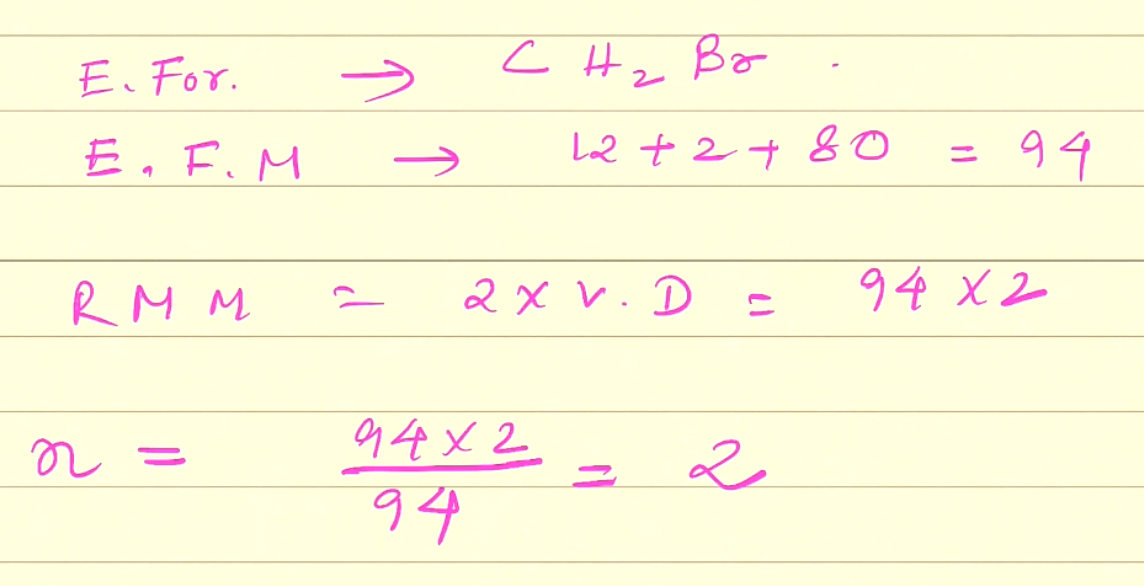 E. For. → CH₂Br.
E. F. M → 12 + 2 + 80 = 94
RMM = 2 x V.D = 94 x 2
n = 94 x 2 / 94 = 2